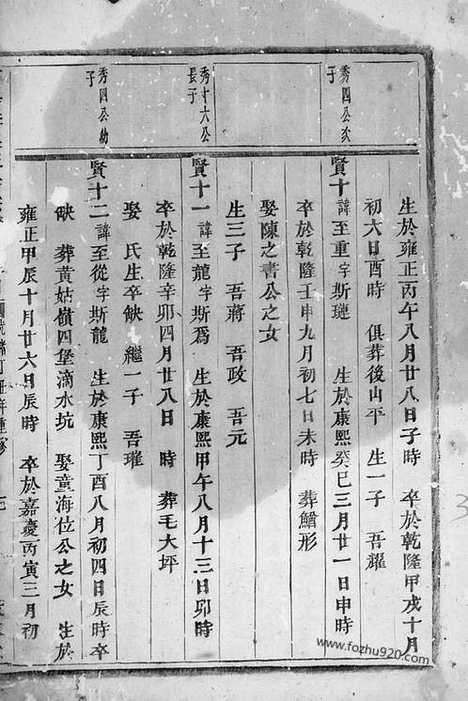 生於雍正丙午八月廿八日子時 卒於乾隆甲戌十月
初六日酉時 俱葬後山平 生一子 吾耀
秀四公次子
賢十 諱至重字斯璉 生於康熙癸巳三月廿一日申時
卒於乾隆壬申九月初七日未時 葬鱠形
娶陳之書公之女
生三子 吾蔣 吾政 吾元
秀十六公長子
賢十一 諱至龍字斯為 生於康熙甲午八月十三日卯時
卒於乾隆辛卯四月廿八日 時 葬毛大坪
娶 氏生卒缺 繼一子 吾璀
秀四公幼子
賢十二 諱至從字斯龍 生於康熙丁酉八月初四日辰時卒
缺 葬黃姑嶺四堡滴水坑 娶童海位公之女 生於
雍正甲辰十月廿六日辰時 卒於嘉慶丙寅三月初
www.fozhu920.com